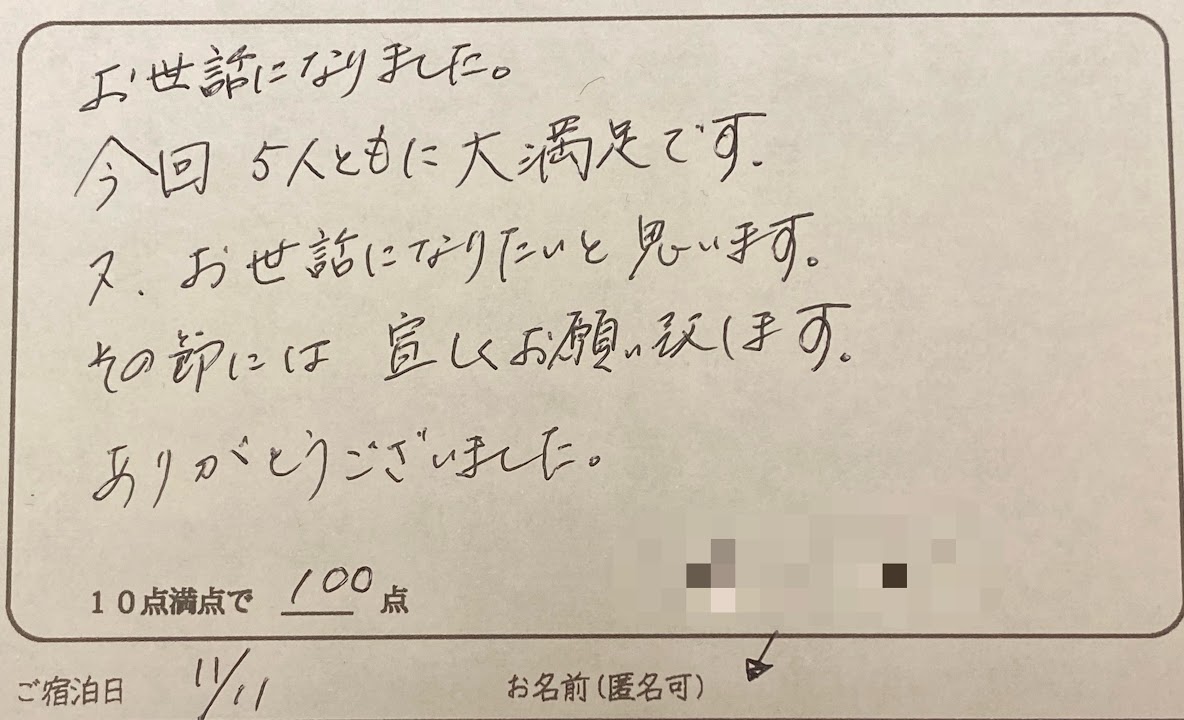 お世話になりました。
今回 5人ともに大満足です.
又、お世話になりたいと思います。
その節には 宜しくお願い致します.
ありがとうございました。
10点満点で 100 点
ご宿泊日 11/11 お名前(匿名可)